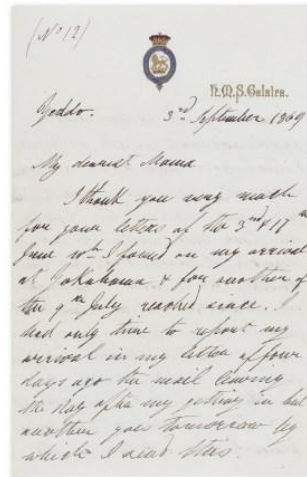 (No 12)
H.M.S. Galatea.
Yeddo. 3rd September 1869
My dearest Mama
I thank you very much
for your letters of the 3rd & 17th
June wh. I found on my arrival
at Yokohama & for another of
the 9th July received since. I
had only time to report my
arrival in my letter of four
days ago the mail leaving
the day after my getting in but
another goes tomorrow by
which I send this.